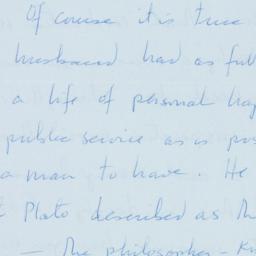 Of course it is true
husband had as full
a life of personal hap
public service as is pos
a man to have. He
Plato described as th
— The philosopher – K